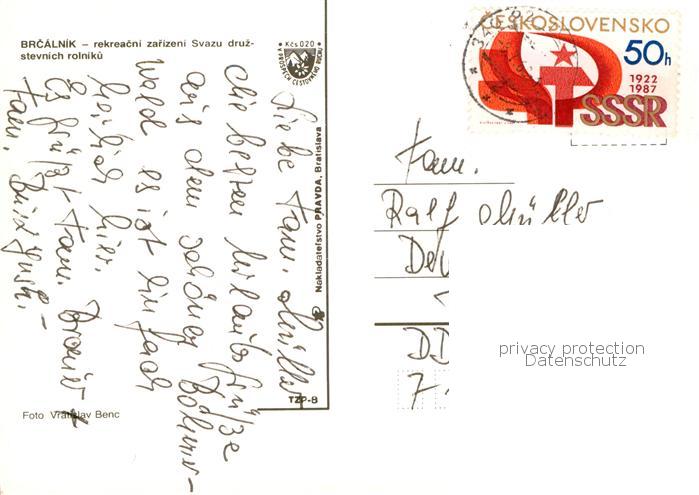 BRČÁLNÍK – rekreační zařízení Svazu druž-
stevních rolníků
Kčs 0,20
Liebe Fam. Müller
die besten Urlaubsgrüße
aus dem schönen Böhmer-
wald es ist einfach
herrlich hier.
Es grüßt Fam.
Fam.
Foto Vratislav Benc
TZP-8
Nakladateľstvo PRAVDA, Bratislava
ČESKOSLOVENSKO
50h
1922
1987
SSSR
Fam.
Ralf Müller
DD
7
privacy protection
Datenschutz